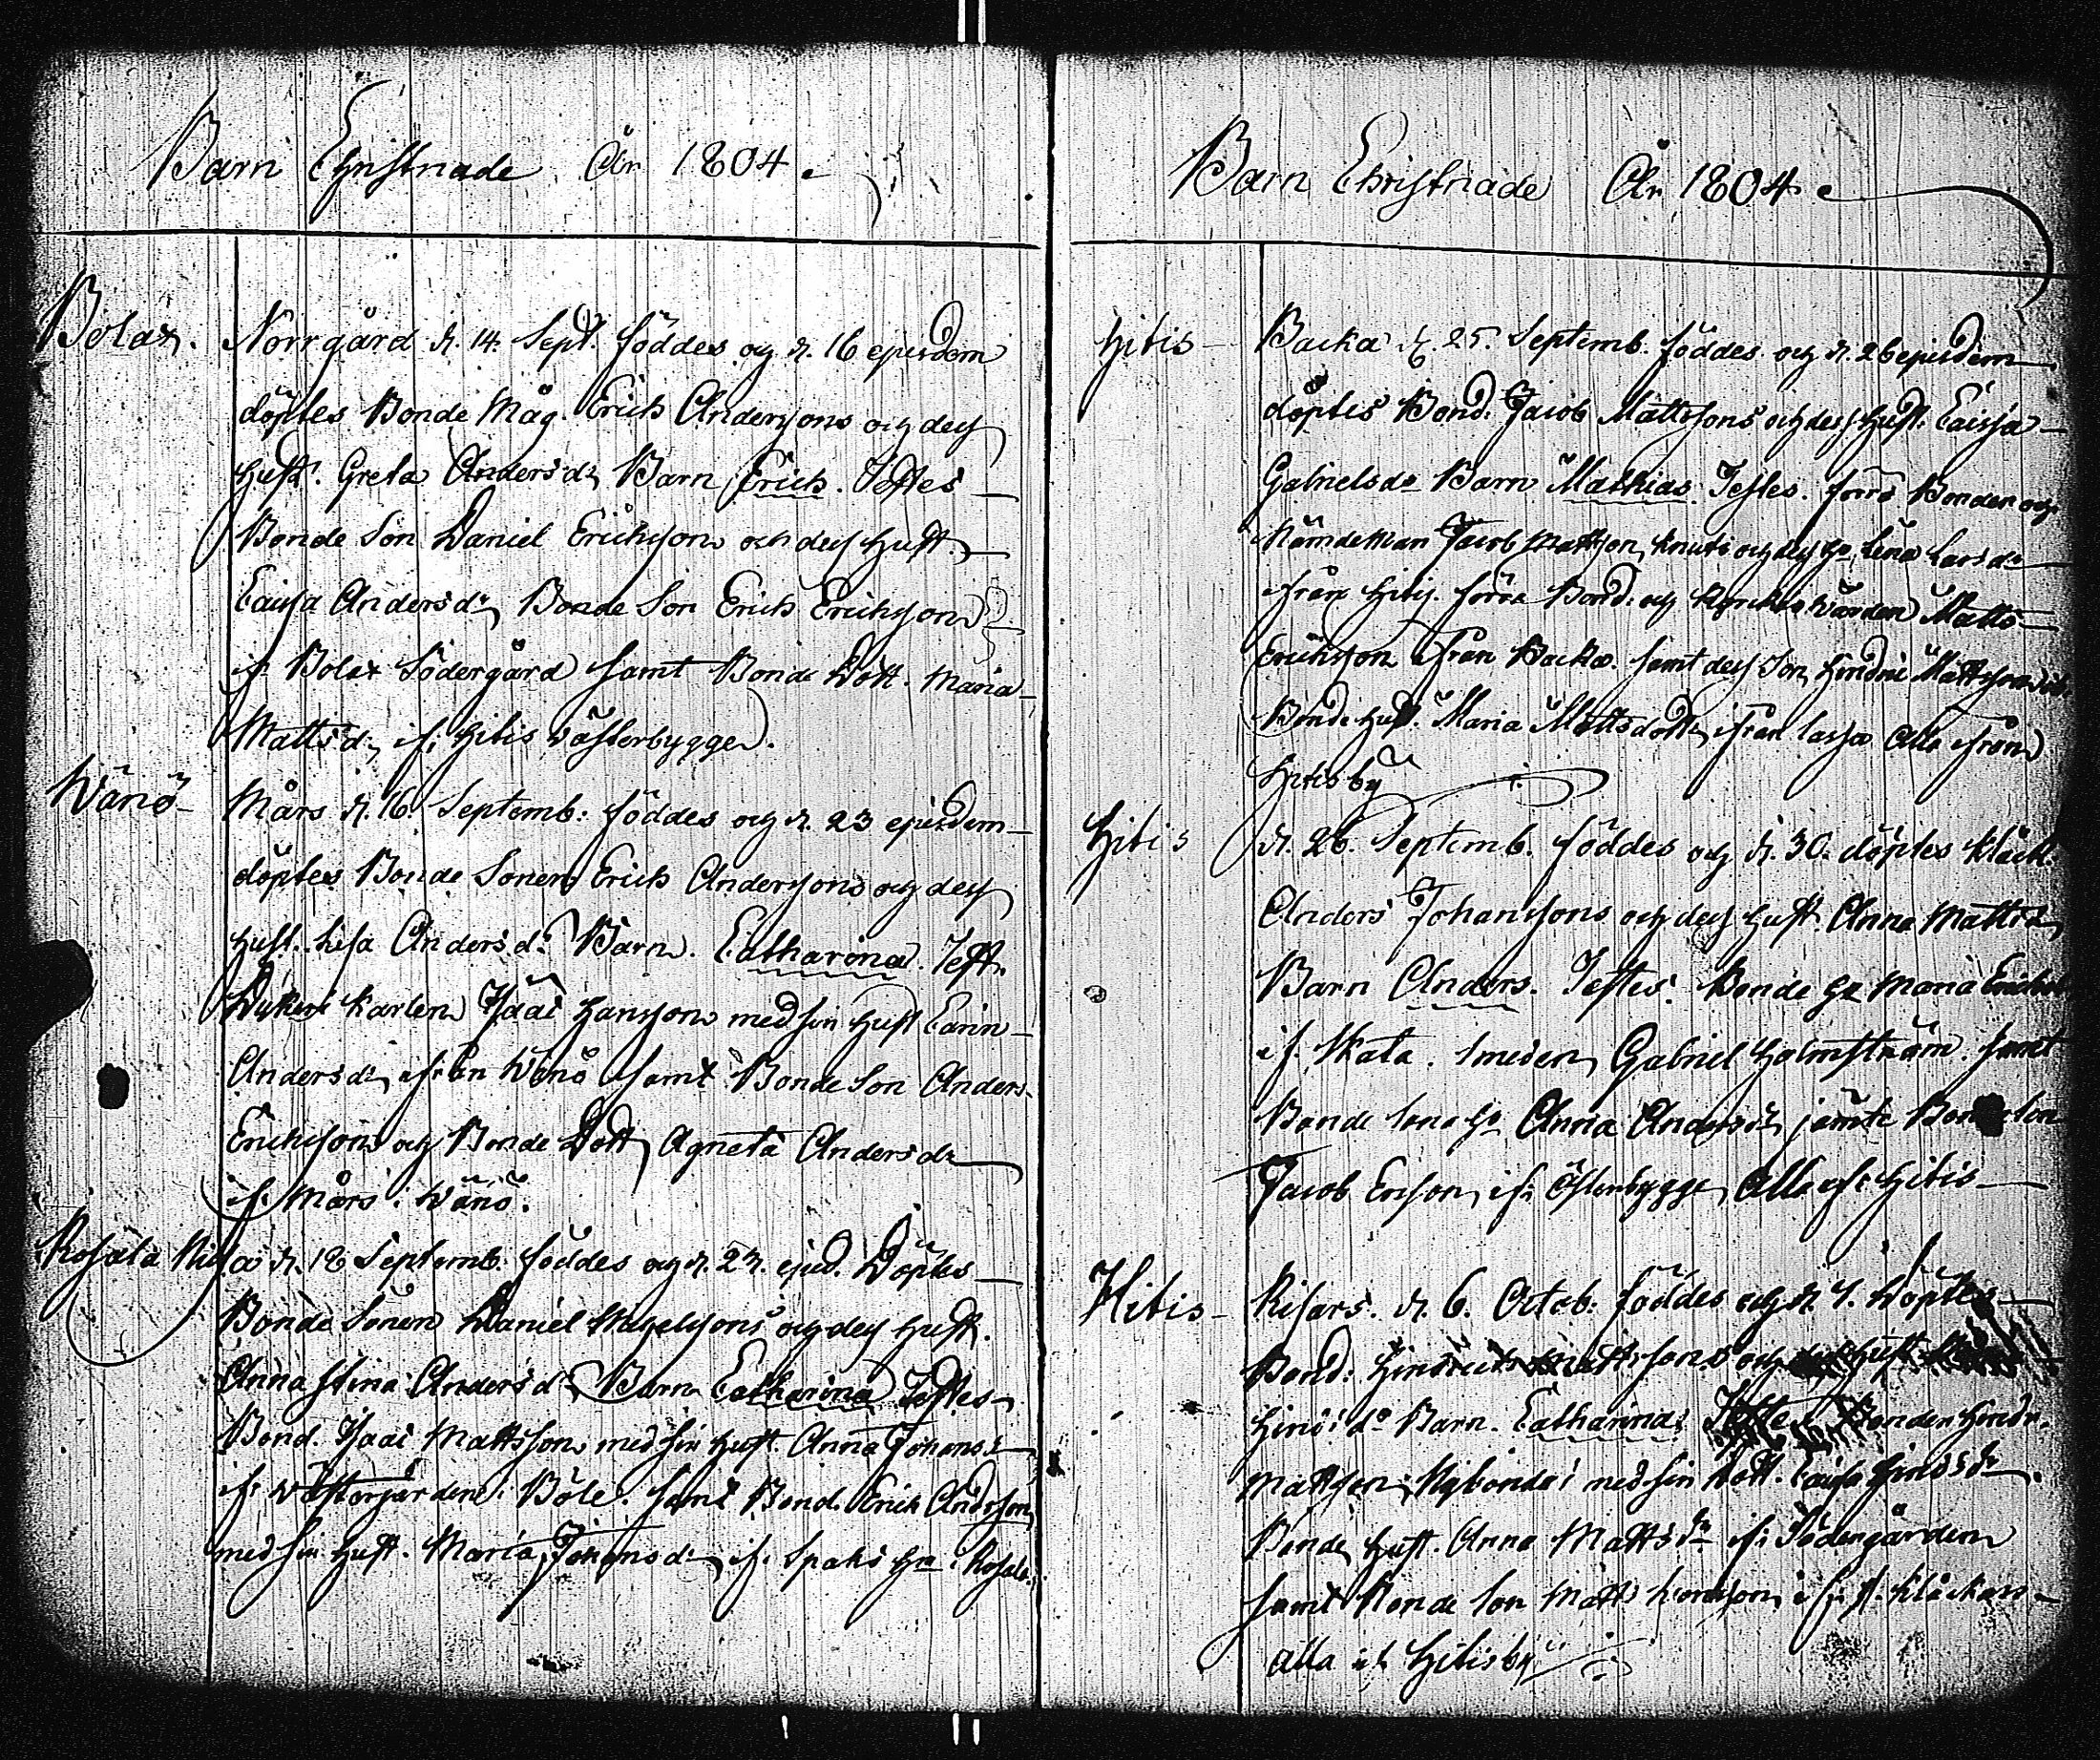 Barn Christnade År 1804.
Bolax. Norrgård d. 14. Sept. föddes og d. 16 ejusdem
döptes Bonde Måg. Erich Anderssons och dess
Hust. Greta Andersdr Barn Erich. Testes
Bonde Son Daniel Erichsson och dess Hust.
Caisa Andersdr Bonde Son Erich Erichsson
if. Bolax Södergård samt Bonde Dott. Maria
Mattsdr if. Hitis Västerbygge.
Wänö Mårs d. 16. Septemb: föddes og d. 23 ejusdem
döptes Bonde Sonen Erich Anderssons og dess
Hust. Lisa Andersdr Barn. Catharina. Test.
Karlen Isaac Hansson med sin Hust Carin
Andersdr ifrån Wänö samt Bonde Son Anders
Erichsson og Bonde Dott Agneta Andersdr
if. Mårs i Wänö.
Rosala d. 18 Septemb. föddes og d. 23. ejusd. Döptes
Bonde Sonen Daniel og dess Hust.
Anna Stina Andersdr Barn Catharina Testes
Bond. Isaac Mattsson med sin Hust. Anna Johansd
if. Wästergården i Böle. samt Bond. Erich Andersson
med sin Hust. Maria Johansdr if. Spaks i Rosala.
Barn Christnade År 1804.
Hitis Backa d. 25. Septemb. föddes och d. 26 ejusdem
döptes Bond: Jacob Mattssons och dess Hust. Caissa
Gabrielsdr Barn Mathias. Testes. förre Bonden og
Nämdeman Jacob Mattsson Knuts og dess Hu Lena Larsdr
ifrån Hitis. förra Bond: og Kyrckowärden Matts
Erichsson ifrån Backa. samt dess Son Hindric Mattsson
Bonde Hust. Maria Mattsdottr ifrån Lassa alla ifrån
Hitis by
Hitis d. 26. Septemb. föddes og d. 30. döptes Klåck.
Anders Johanssons och dess Hust. Anna Mattsdr
Barn Anders. Testes. Bonde Hu Maria
if. Skata. Smeden Gabriel Holmström. samt
Bonde Sons Hu Anna Andersdr jämte Bonde Son
Jacob Ersson if. Österbygge, alla if. Hitis
Hitis d. 6. Octob: föddes og d. 7. Döptes
Bond: Hindrich Mattssons och Hust
Hins: dr Barn. Catharina: Testes Bonden Hindr.
Mattsson med sin Dott. Caisa Hinsdr
Bonde Hust. Anna Mattsdr if. Södergården
samt Bonde Son Matts if. Klåckars
alla if. Hitis by